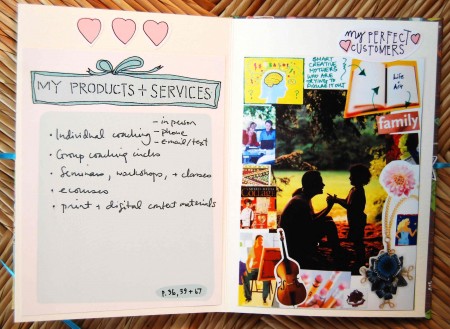 MY PRODUCTS + SERVICES
• Individual coaching
– in person
– phone
– email/text
• Group coaching circles
• Seminars, workshops, + classes
• ecourses
• print + digital content materials
P. 36, 39 + 67
my PERFECT
CUSTOMERS
SMART
CREATIVE
MOTHERS
WHO ARE
TRYING TO
FIGURE IT OUT
Life
Art
family